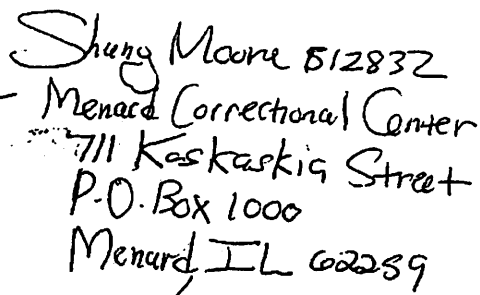 Shung Moore B12832
Menard Correctional Center
711 Kaskaskia Street
P.O. Box 1000
Menard, IL 62259